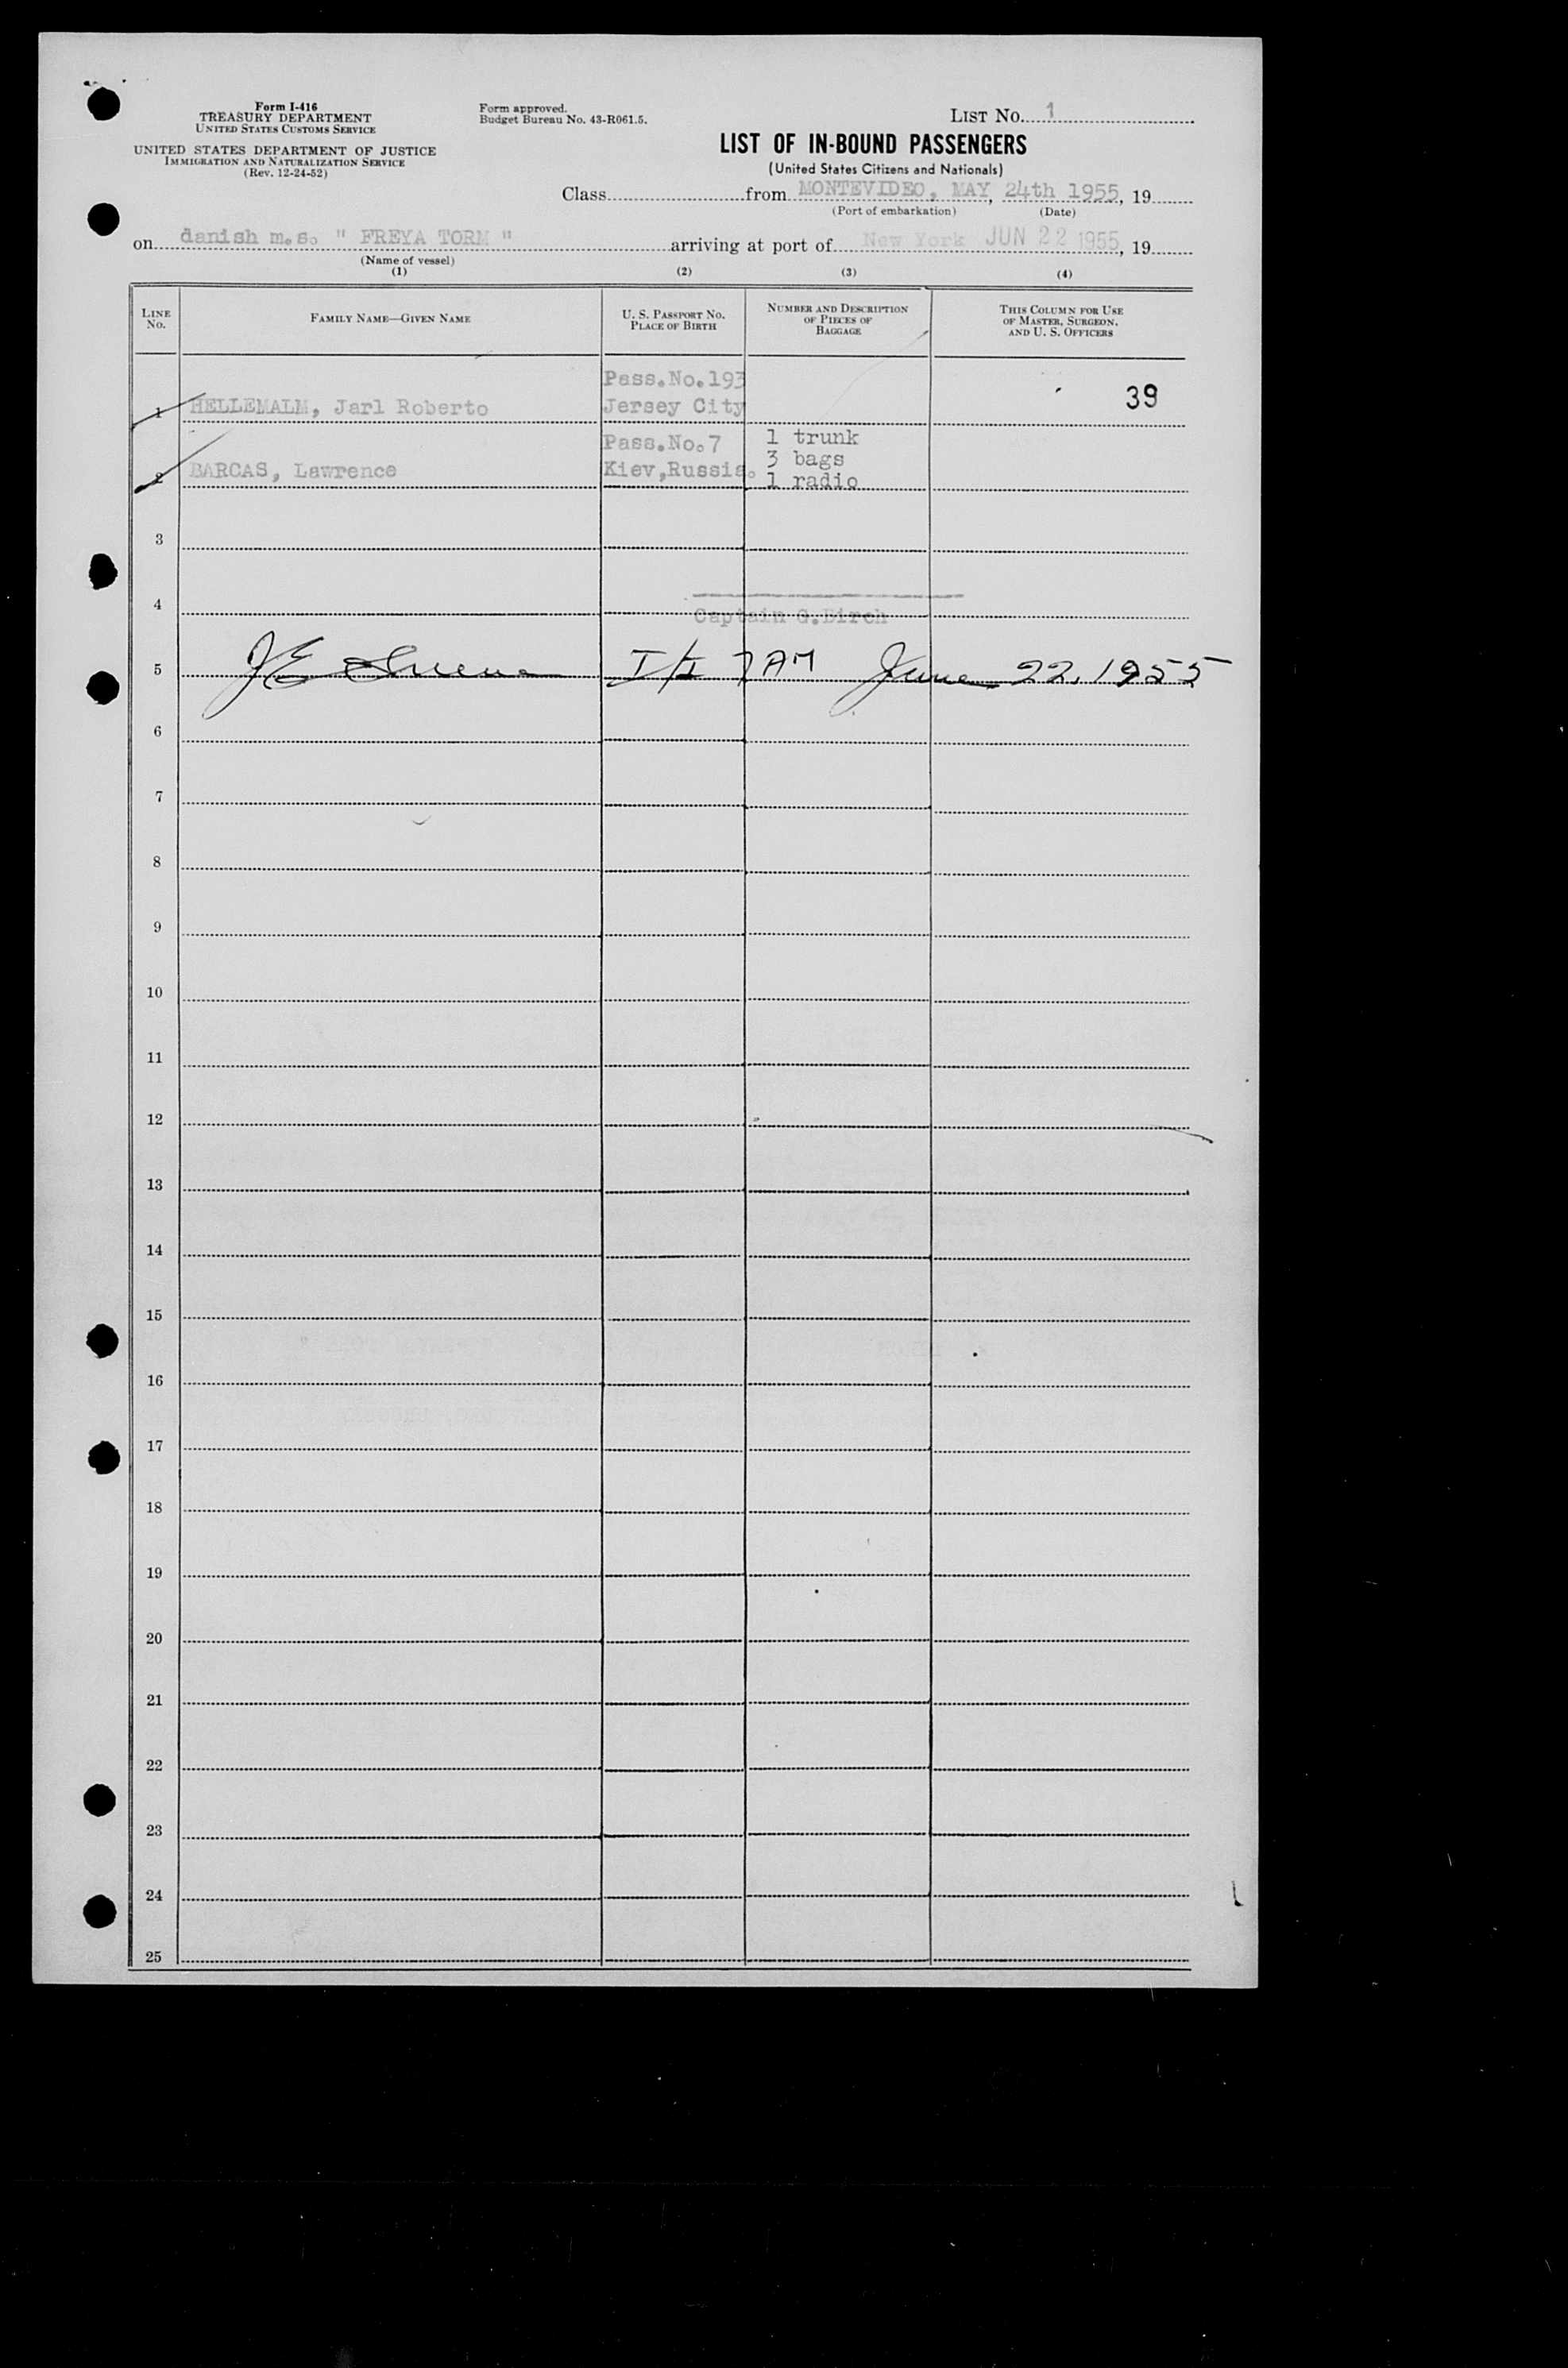 Form I-416
TREASURY DEPARTMENT
UNITED STATES CUSTOMS SERVICE
UNITED STATES DEPARTMENT OF JUSTICE
IMMIGRATION AND NATURALIZATION SERVICE
(Rev. 12-24-52)
Form approved.
Budget Bureau No. 43-R061.5.
LIST No. 1
LIST OF IN-BOUND PASSENGERS
(United States Citizens and Nationals)
Class from MONTEVIDEO, MAY, 24th 1955, 19
(Port of embarkation) (Date)
on danish m.s. " FREYA TORM " arriving at port of New York JUN 22 1955, 19
(Name of vessel)
(1) (2) (3) (4)
LINE No. FAMILY NAME—GIVEN NAME U. S. PASSPORT No. PLACE OF BIRTH NUMBER AND DESCRIPTION OF PIECES OF BAGGAGE THIS COLUMN FOR USE OF MASTER, SURGEON, AND U. S. OFFICERS
Pass.No.193
1 HELLEMALM, Jarl Roberto Jersey City 39
Pass.No.7 1 trunk
3 bags
2 BARCAS, Lawrence Kiev,Russia. 1 radio
3
4 Captain G.Birch
5 JE I/I 7 AM June 22, 1955
6
7
8
9
10
11
12
13
14
15
16
17
18
19
20
21
22
23
24
25